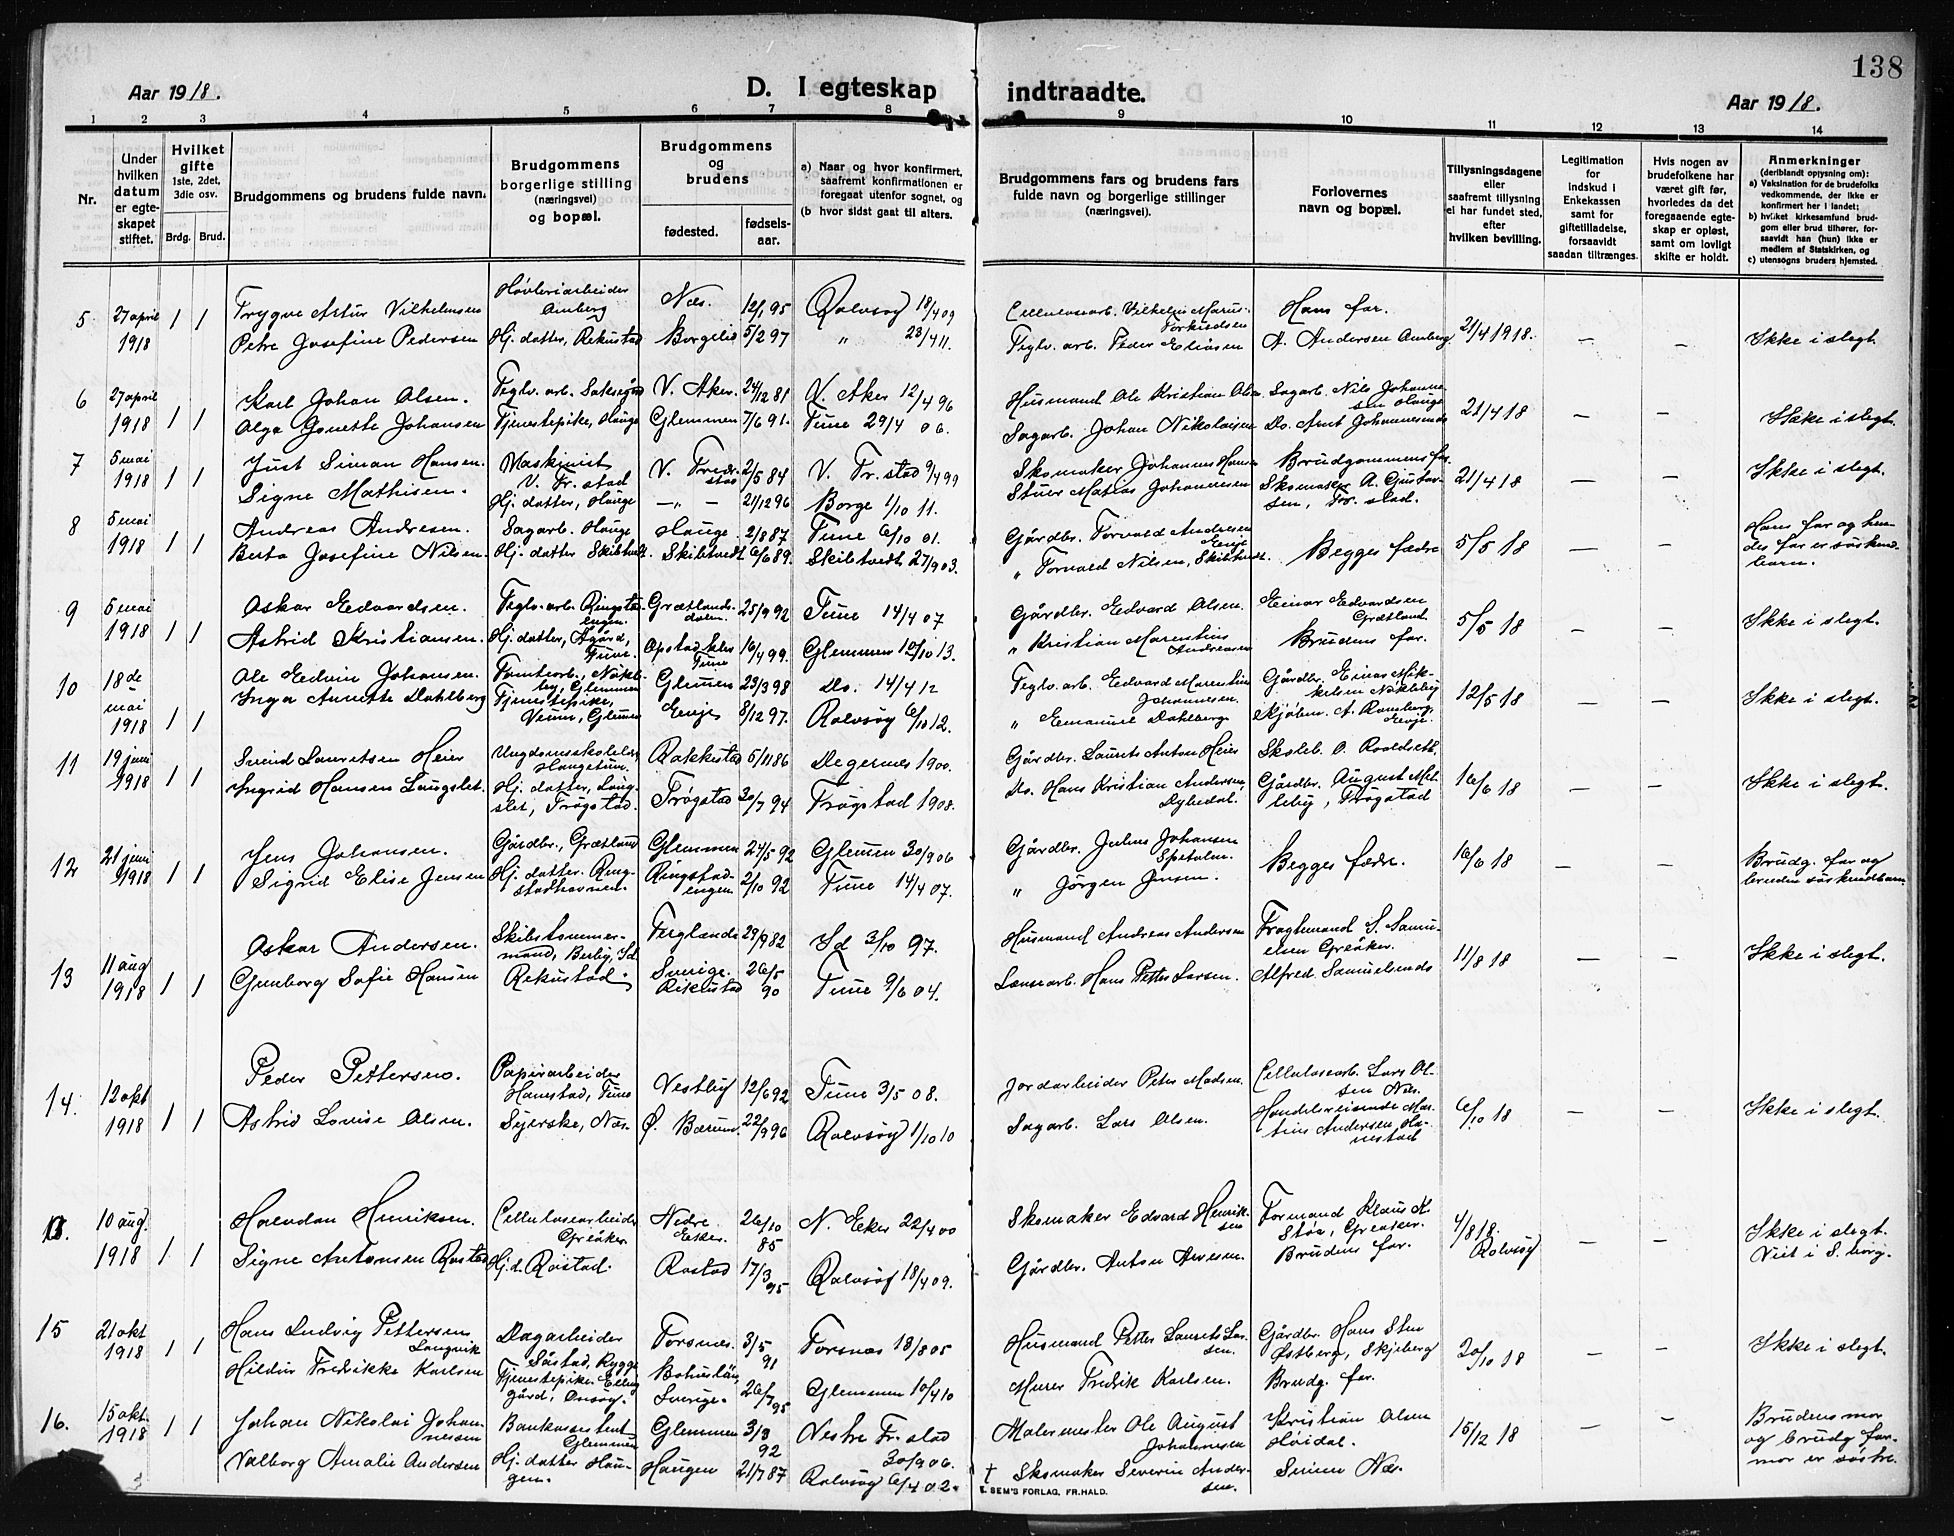 138
Aar 1918.
D. I egteskap indtraadte.
Aar 1918.
1 2 3 4 5 6 7 8 9 10 11 12 13 14
Nr.
Under hvilken datum er egteskapet stiftet.
Hvilket gifte 1ste, 2det, 3die osv.
Brdg. Brud.
Brudgommens og brudens fulde navn.
Brudgommens borgerlige stilling (næringsvei) og bopæl.
Brudgommens og brudens
fødested. fødselsaar.
a) Naar og hvor konfirmert, saafremt konfirmationen er foregaat utenfor sognet, og
(b hvor sidst gaat til alters.
Brudgommens fars og brudens fars fulde navn og borgerlige stillinger (næringsvei).
Forlovernes navn og bopæl.
Tillysningsdagene eller saafremt tillysning ei har fundet sted, efter hvilken bevilling.
Legitimation for indskud i Enkekassen samt for giftetilladelse, forsaavidt saadan tiltrænges.
Hvis nogen av brudefolkene har været gift før, hvorledes da det foregaaende egteskap er opløst, samt om lovligt skifte er holdt.
Anmerkninger (deriblandt oplysning om):
a) Vaksination for de brudefolks vedkommende, der ikke er konfirmert her i landet;
b) hvilket kirkesamfund brudgom eller brud tilhører, forsaavidt han (hun) ikke er medlem af Statskirken, og
c) utensogns bruders hjemsted.
5 27 april 1918 1 1
Trygve Artur Vilhelmsen Høvleriarbeider Næs. 12/1 95 Rolvsøy 18/4 09 Cellulosearb. Vilhelm Marius Hans far.
Petra Josefine Pedersen Hj. datter, Rekustad 5/2 97 " 23/4 11. Teglv. arb. Peder Eliasen A. Andersen 21/4 1918. — — Ikke i slegt.
6 27 april 1918 1 1
Karl Johan Olsen. Teglv. arb. V. Aker. 24/12 81 V. Aker 12/4 96 Husmand Ole Kristian Olsen Sagarb. Nils Johannessen Hauge
Olga Jonette Johansen Tjenestepike, Hauge Glemmen 7/6 91. Tune 29/4 06. Sagarb. Johan Nikolaisen Do. Arnt Johannesen 21/4 18 — — Ikke i slegt.
7 5 mai 1918 1 1
Just Simon Hansen. Maskinist V. Fr. stad V. Fredrstad 2/5 84 V. Fr. stad 9/4 99 Skomaker Johannes Hansen Brudgommens far,
Signe Mathisen. Hj. datter, Hauge — " — 21/12 96 Borge 1/10 11. Stuer Matias Johannesen Skomaker A. Gustavsen, Fr. stad. 21/4 18 — — Ikke i slegt.
8 5 mai 1918 1 1
Andreas Andresen. Sagarb. Hauge Hauge 2/8 87 Tune 6/10 01. Gårdbr. Torvald Andresen Evje
Berta Josefine Nilsen Hj. datter Skibtvedt. Skibtvedt 6/6 89. Skibtvedt 27/9 03. " Torvald Nilsen, Skibtvedt. Begges fædre 5/5 18 — — Hans far og hendes far er søskendbarn.
9 5 mai 1918 1 1
Oskar Edvardsen. Teglv. arb. Ringstadengen. Grætlandsdalen. 25/9 92 Tune 14/4 07 Gårdbr. Edvard Olsen. Einar Edvardsen Grætland
Astrid Kristiansen. Hj. datter, Agård, Tune. Opstad Tune 16/4 99. Glemmen 10/10 13. " Kristian Marentius Andreasen Brudens far. 5/5 18 — — Ikke i slegt.
10 18de mai 1918 1 1
Ole Edvin Johansen. Tomtearb., Nøkleby, Glemmen Glemmen 23/3 98 Do. 14/4 12 Teglv. arb. Edvard Marentius Johannesen. Gårdbr. Einar Mikkelsen Nøkleby
Inga Annette Dahlberg Tjenestepike, Veum, Glemmen Evje 8/12 97. Rolvsøy 6/10 12. " Emanuel Dahlberg Kjøbm. A. Ramberg, Evje. 12/5 18 — — Ikke i slegt.
11 19 juni 1918 1 1
Svend Lauritsen Heier Ungdomsskolelærer, Haugetun. Rakkestad 5/11 86 Degernes 1900. Gårdbr. Laurits Anton Heier Skoleb. O. Roaldseth
Ingrid Hansen Langslet. Hj. datter, Langslet, Trøgstad. Trøgstad 30/7 94 Trøgstad 1908. Do. Hans Kristian Andersen, Dybedal. Gårdbr. August Melleby, Trøgstad 16/6 18 — — Ikke i slegt.
12 21 juni 1918 1 1
Jens Johansen. Gårdbr., Grætland Glemmen 24/5 92 Glemmen 30/9 06 Gårdbr. Julius Johansen Spetalen.
Sigrid Elise Jensen Hj. datter. Ringstadhavnen. Ringstadengen 2/10 92 Tune 14/4 07. " Jørgen Jensen. Begges fædre. 16/6 18 — — Brudg. far og bruden søskendbarn
13 11 aug 1918 1 1
Oskar Andersen. Skibstømmermand, Berby, Id. 29/9 82 Id 3/10 97. Husmand Andreas Andersen Fragtemand S. Samuelsen Greåker.
Gunborg Sofie Hansen Rekustad. Sverige. Rekustad 26/5 90 Tune 9/6 04. Lænsearb. Hans Petter Larsen. Alfred Samuelsen 11/8 18 — — Ikke i slegt.
14. 12 okt 1918 1 1
Peder Pettersen. Papirarbeider Hanestad, Tune Vestby 12/6 92 Tune 3/5 08. Jordarbeider Peter Madsen. Cellulosearb. Lars Olsen Næs.
Astrid Lovise Olsen. Syerske, Næs. Ø. Bærum. 22/9 96 Rolvsøy 1/10 10 Sagarb. Lars Olsen. Handelsreisende Martin Andersen, Hanestad 6/10 18 — — Ikke i slegt.
10 aug. 1918 1 1
Halvdan Henriksen. Cellulosearbeider Greåker Nedre Eker. 26/10 85 N. Eker 22/4 00 Skomaker Edvard Henriksen Formand Klaus Støa, Greåker.
Signe Antonsen Røstad Hj. d. Røstad. Røstad 17/3 95 Rolvsøy 18/4 09. Gårdbr. Anton Arvesen. Brudens far. 4/8 18. Rolvsøy — — Ikke i slegt. Viet i S. borg.
15 21 okt 1918 1 1
Hans Ludvig Pettersen Langvik Dagarbeider Såstad, Rygge Torsnes. 3/5 91 Torsnæs 13/8 05 Husmand Petter Laurits Larsen. Gårdbr. Hans Sten Østberg, Skjeberg
Hildur Fredrikke Karlsen Tjenestepike. Elingård, Onsøy. Bohuslän Sverige. 26/7 95 Glemmen 10/4 10 Murer Fredrik Karlsen. Brudg. far. 20/10 18 — — Ikke i slegt.
16. 15 okt. 1918 1 1
Johan Nikolai Johannessen Bankassistent Glemmen Glemmen 3/3 92 Vestre Fr. stad 30/9 06. Malermester Ole August Johannesen Kristian Olsen Høidal.
Valborg Amalie Andersen Hj. datter Haugen. Haugen 21/7 87 Rolvsøy 6/4 02. † Skomaker Severin Andersen. Næs. 15/12 18 — — Brudens mor og brudg. farmor er søstre.
E. SEM'S FORLAG, FR.HALD.